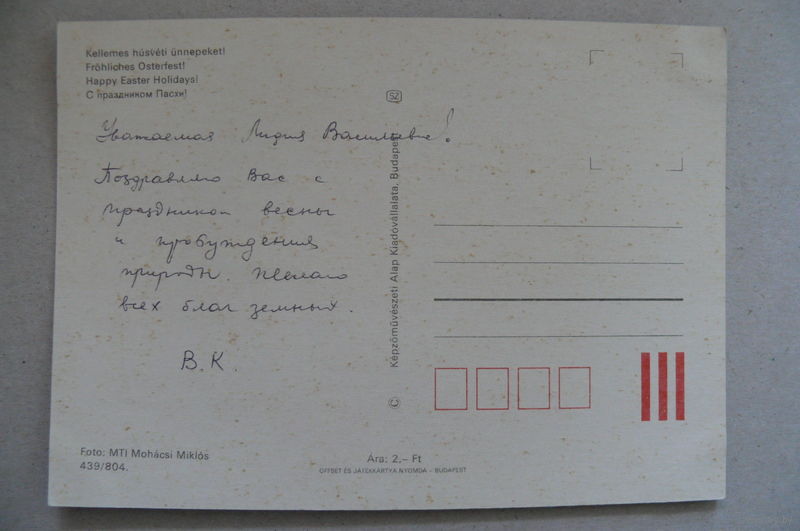 Kellemes húsvéti ünnepeket!
Fröhliches Osterfest!
Happy Easter Holidays!
С праздником Пасхи!
SZ
Уважаемая Лидия Васильевна!
Поздравляю Вас с
праздником весны
и пробуждения
природы. Желаю
всех благ земных.
В.К.
© Képzőművészeti Alap Kiadóvállalata, Budapest
Foto: MTI Mohácsi Miklós
439/804.
Ára: 2,– Ft
OFFSET ÉS JÁTÉKKÁRTYA NYOMDA – BUDAPEST